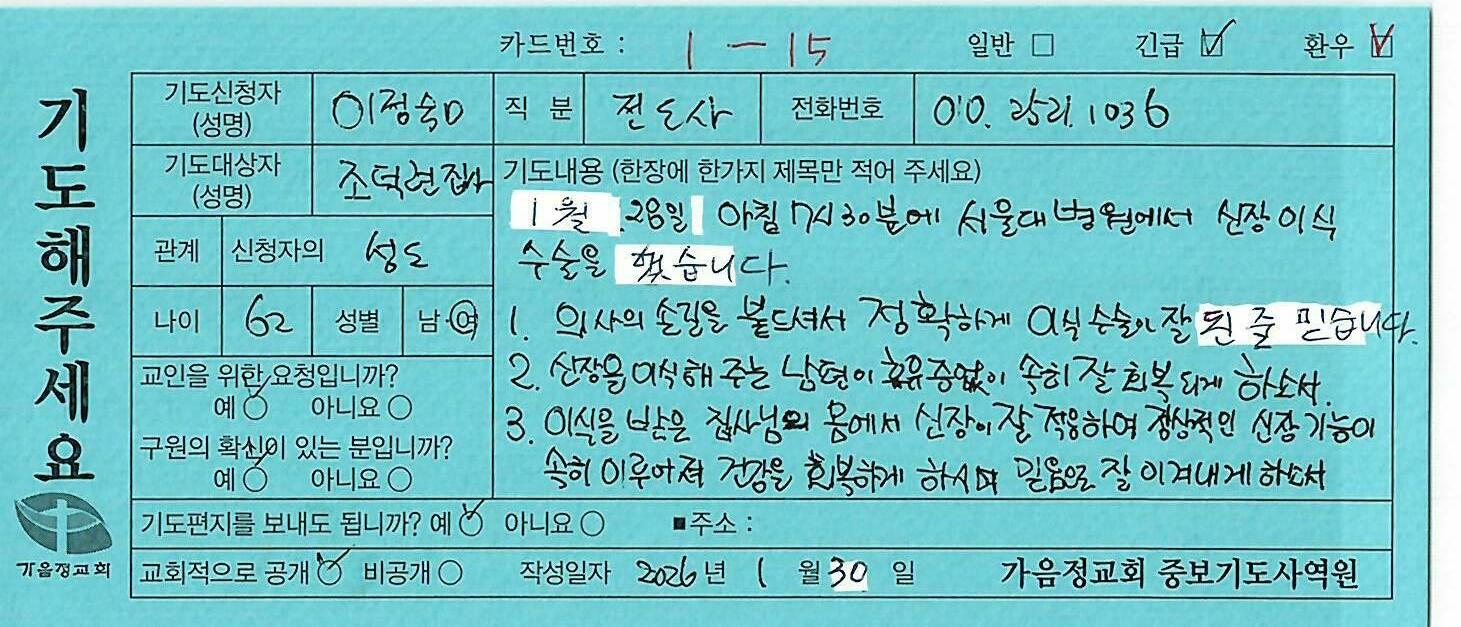 카드번호 : 1 - 15 일반 □ 긴급 ☑ 환우 ☑
기도해주세요
기도신청자 (성명) 이정숙D 직 분 전도사 전화번호 010. 1036
기도대상자 (성명) 조덕련집사
관계 신청자의 성도
나이 62 성별 남·여
교인을 위한 요청입니까?
예 ○ 아니요 ○
구원의 확신이 있는 분입니까?
예 ○ 아니요 ○
기도내용 (한장에 한가지 제목만 적어 주세요)
1월 28일 아침 7시30분에 서울대병원에서 신장이식
수술을 했습니다.
1. 의사의 손길을 붙드셔서 정확하게 이식수술이 잘 된 줄 믿습니다.
2. 신장을 이식해 주는 남편이 휴유증없이 속히 잘 회복되게 하소서.
3. 이식을 받은 집사님의 몸에서 신장이 잘 적응하여 정상적인 신장기능이
속히 이루어져 건강을 회복하게 하시며 믿음으로 잘 이겨내게 하소서
기도편지를 보내도 됩니까? 예 ○ 아니요 ○ ■주소 :
교회적으로 공개 ○ 비공개 ○ 작성일자 2026년 1 월 30 일 가음정교회 중보기도사역원
가음정교회